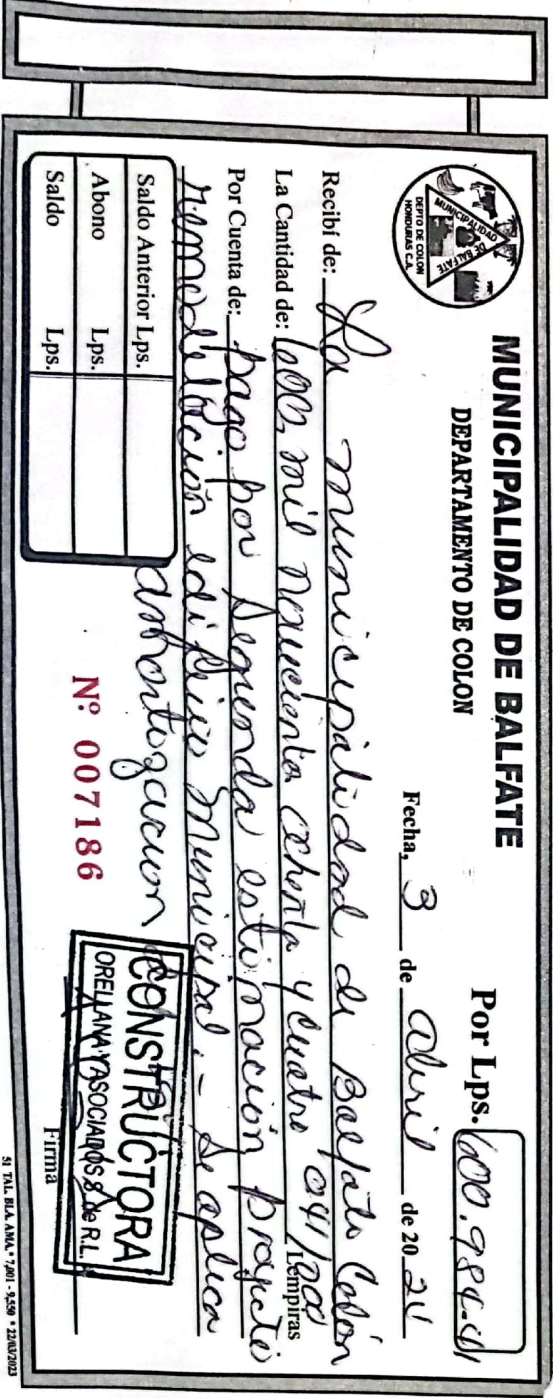 MUNICIPALIDAD DE BALFATE
DEPARTAMENTO DE COLON
MUNICIPALIDAD DE BALFATE
DEPTO DE COLON
HONDURAS C.A.
Por Lps. 600.984.41
Fecha, 3 de abril de 2024
Recibí de: La municipalidad de Balfate Colón
La Cantidad de: 600 mil novecienta ochenta y cuatro 041/00 Lempiras
Por Cuenta de: pago por segunda estimación proyecto
remodelación edificio Municipal.- Se aplica
amortizacion
Saldo Anterior Lps.
Abono Lps.
Saldo Lps.
Nº 007186
CONSTRUCTORA
ORELLANA Y ASOCIADOS S de R.L.
Firma
51 TAL. BLA. AMA.* 7,001 - 9,550 * 22/03/2023